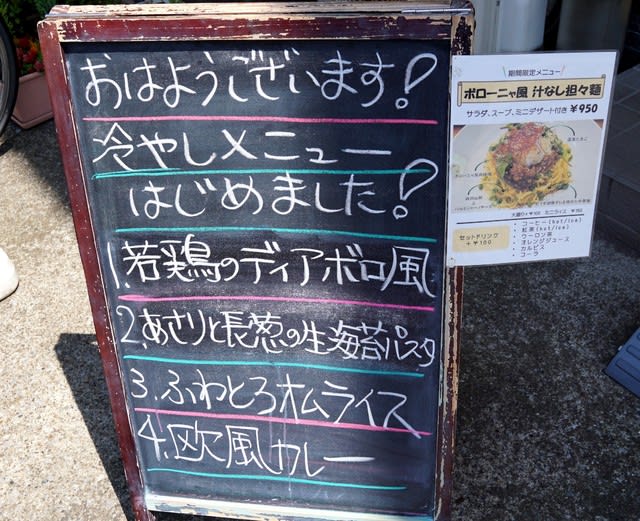 おはようございます!
冷やしメニュー
はじめました!
1.若鶏のディアボロ風
2.あさりと長葱の生海苔パスタ
3.ふわとろオムライス
4.欧風カレー
期間限定メニュー
ボローニャ風 汁なし担々麺
サラダ、スープ、ミニデザート付き ¥950
大盛り+¥100 ミニライス ¥150
セットドリンク
+¥100
・ コーヒー(hot/ice)
・ 紅茶(hot/ice)
・ ウーロン茶
・ オレンジジュース
・ カルピス
・ コーラ